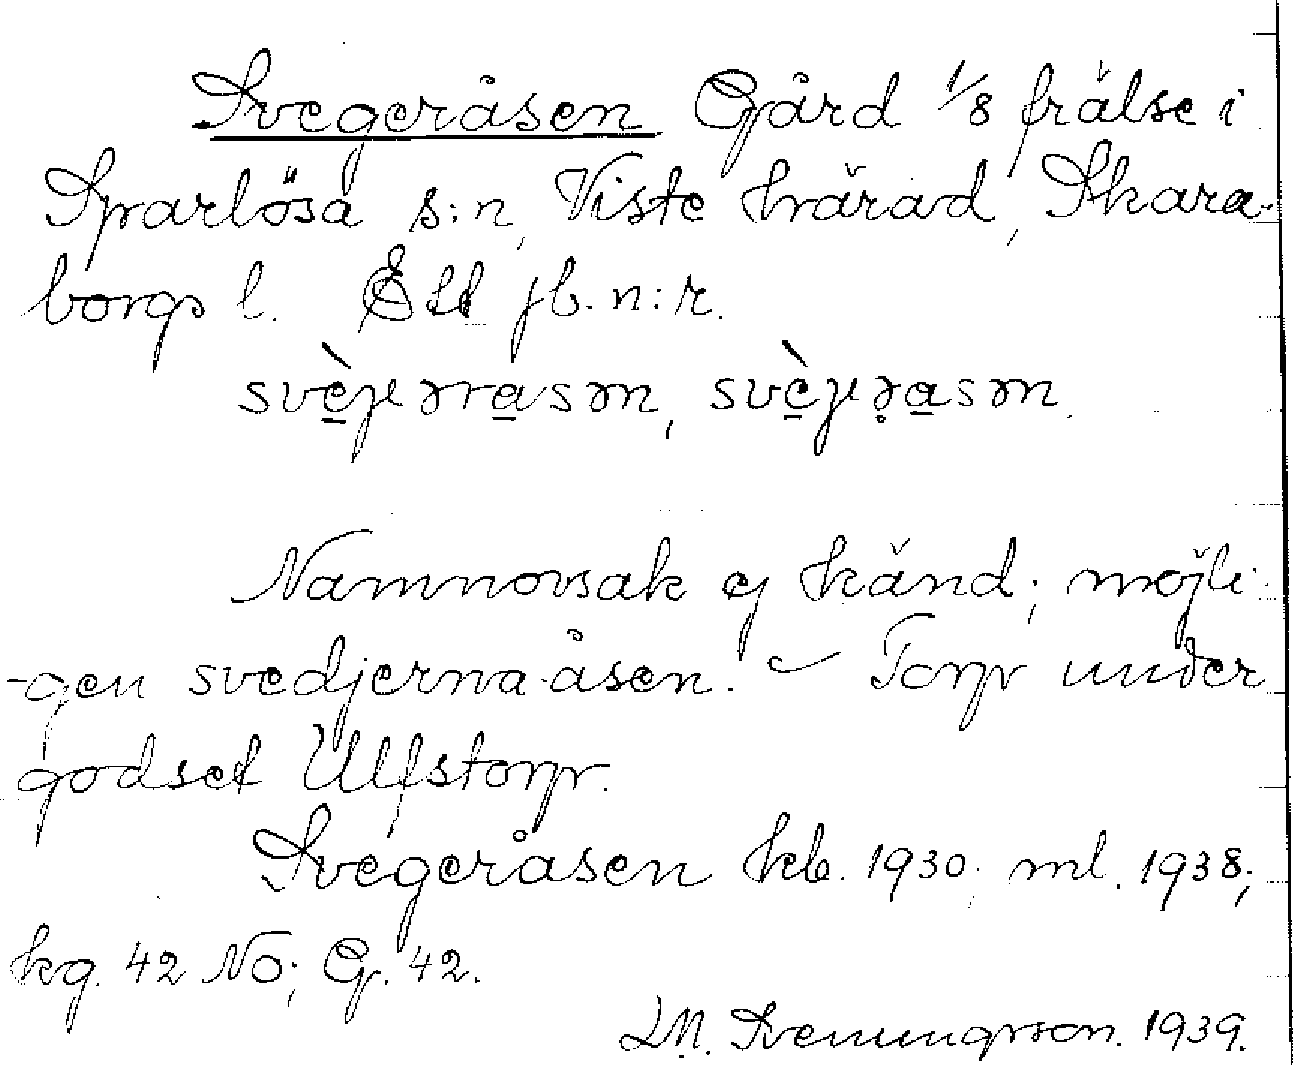 Svegeråsen Gård 1/8 frälse i
Sparlösa s:n, Viste härad, Skara-
borgs l. Ett jb. n:r.
svèjerrasən, svèjrasən.
Namnorsak ej känd; möjli-
-gen svedjerna-åsen. – Torp under
godset Ulfstorp.
Svegeråsen kb. 1930; ml. 1938;
kg. 42 NO; G. 42.
I.M. Svenungsson. 1939.